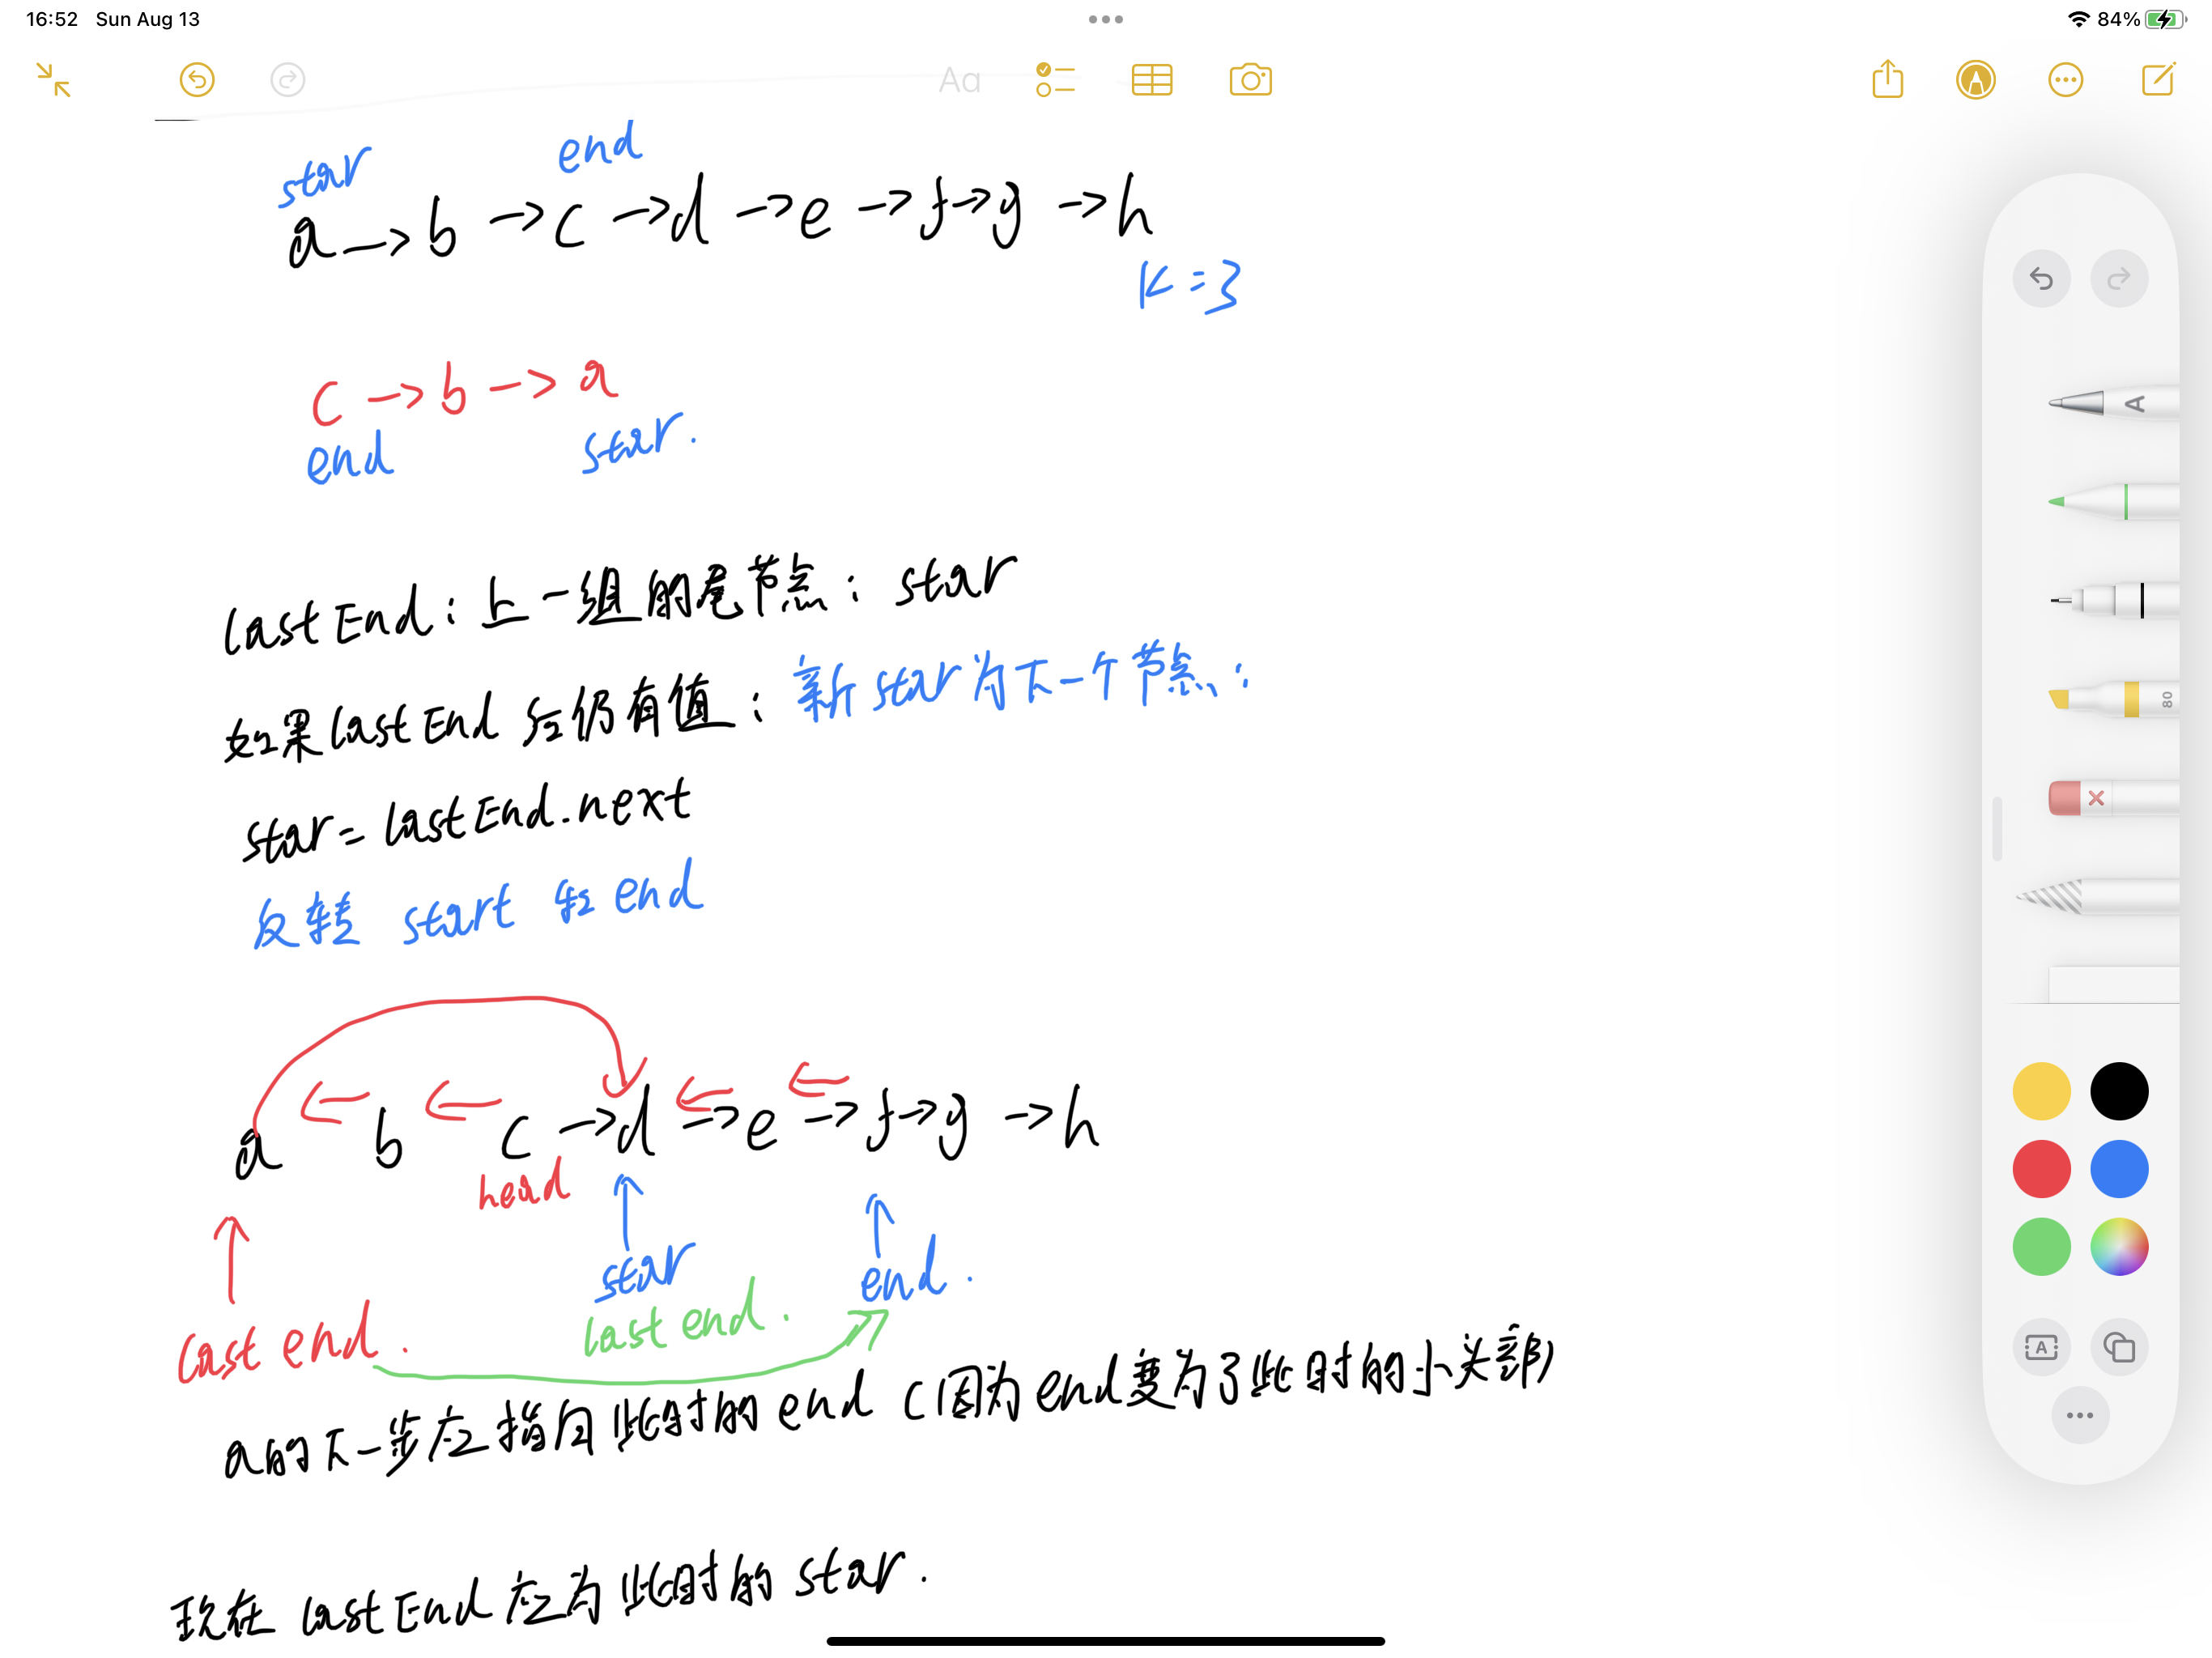 16:52 Sun Aug 13
84%
Aa
star end
a→b→c→d→e→f→g→h
K=3
c→b→a
end star.
lastEnd：上一组的尾节点：star
如果lastEnd后仍有值：新star为下一个节点：
star=lastEnd.next
反转 start 和 end
a b c→d→e→f→g→h
head
star end.
last end.
last end.
a的下一步应指向此时的end（因为end变为了此时的小头部）
现在lastEnd应为此时的star.
A
80
A